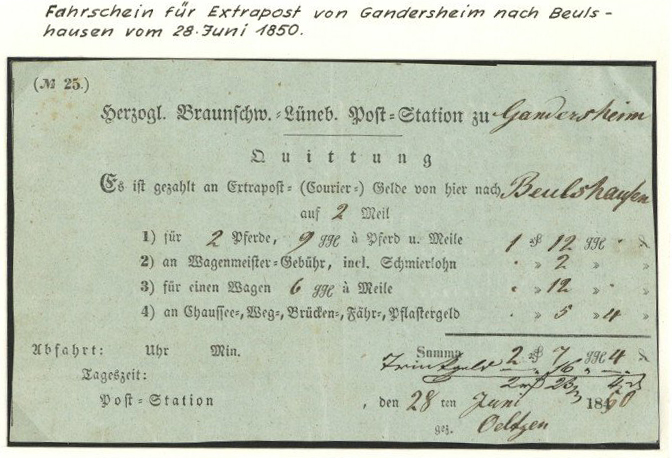 Fahrschein für Extrapost von Gandersheim nach Beuls-
hausen vom 28. Juni 1850.
(№ 25.)
Herzogl. Braunschw.-Lüneb. Post-Station zu Gandersheim
Quittung
Es ist gezahlt an Extrapost- (Courier-) Gelde von hier nach Beulshausen
auf 2 Meil
1) für 2 Pferde, 9 gGr à Pferd u. Meile 1 „ 12 gGr „
2) an Wagenmeister-Gebühr, incl. Schmierlohn „ 2 „ „
3) für einen Wagen 6 gGr à Meile „ 12 „
4) an Chaussee-, Weg-, Brücken-, Fähr-, Pflastergeld „ 5 „ 4
Abfahrt: Uhr Min. Summa 2 7 gGr 4
Trinkgeld 16
Tageszeit: 2 23 4
Post-Station , den 28 ten Juni 1850
gez. Oeltzen